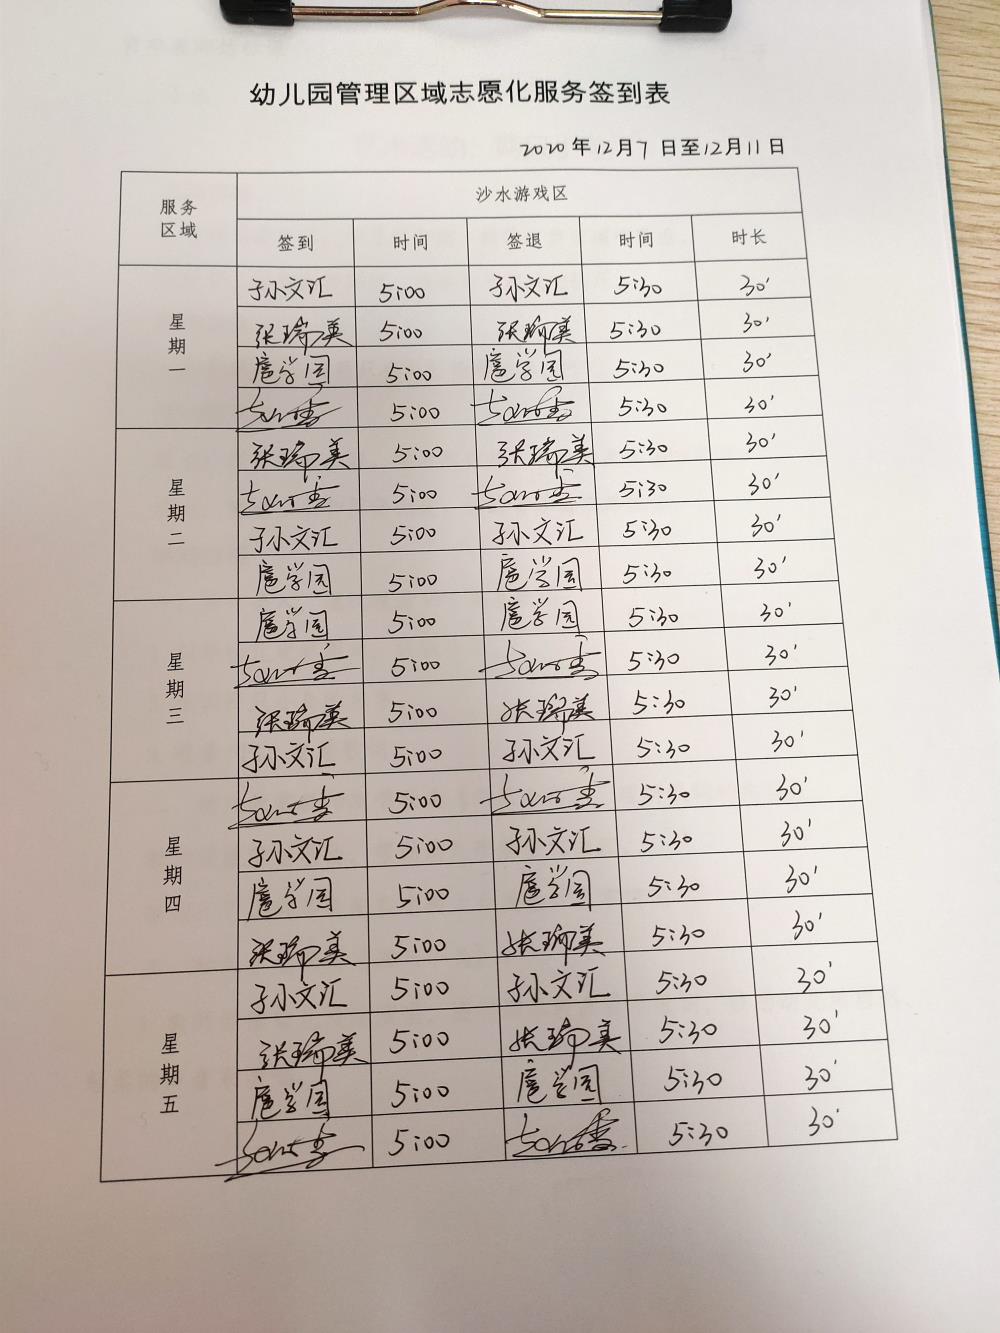 幼儿园管理区域志愿化服务签到表
2020年12月7日至12月11日
服务区域 沙水游戏区
签到 时间 签退 时间 时长
星期一
孙文汇 5:00 孙文汇 5:30 30'
张瑞美 5:00 张瑞美 5:30 30'
扈学园 5:00 扈学园 5:30 30'
5:00 5:30 30'
星期二
张瑞美 5:00 张瑞美 5:30 30'
5:00 5:30 30'
孙文汇 5:00 孙文汇 5:30 30'
扈学园 5:00 扈学园 5:30 30'
星期三
扈学园 5:00 扈学园 5:30 30'
5:00 5:30 30'
张瑞美 5:00 张瑞美 5:30 30'
孙文汇 5:00 孙文汇 5:30 30'
星期四
5:00 5:30 30'
孙文汇 5:00 孙文汇 5:30 30'
扈学园 5:00 扈学园 5:30 30'
张瑞美 5:00 张瑞美 5:30 30'
星期五
孙文汇 5:00 孙文汇 5:30 30'
张瑞美 5:00 张瑞美 5:30 30'
扈学园 5:00 扈学园 5:30 30'
5:00 5:30 30'